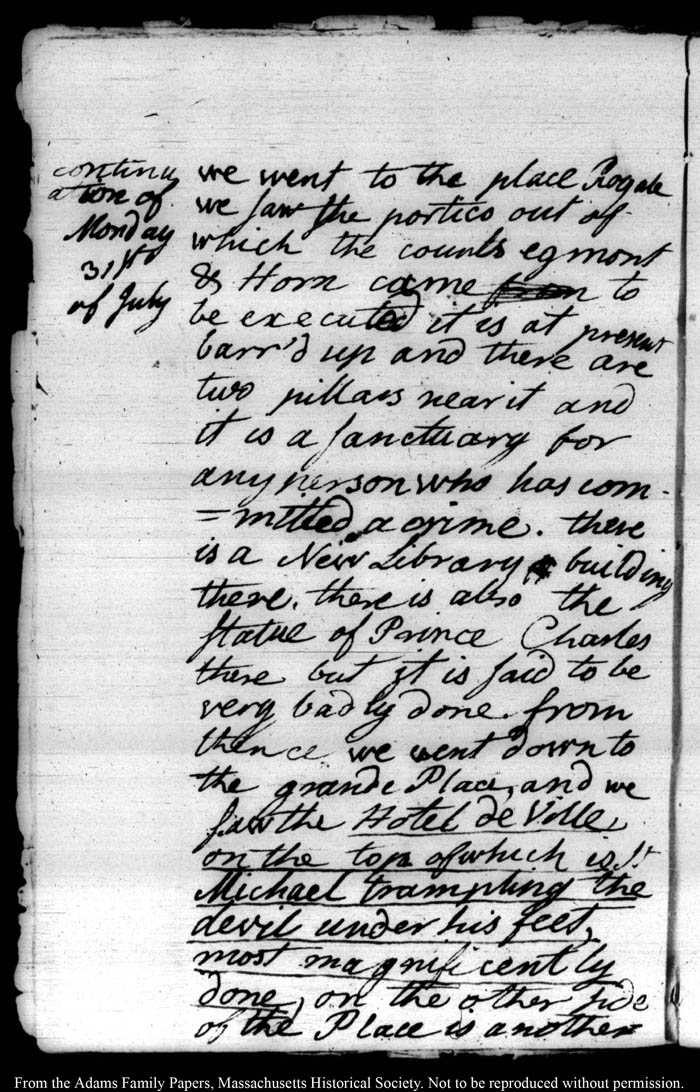 continu
ation of
Monday
31st
of July
we went to the place Rogale
we saw the portico out of
which the counts egmont
& Horn came to
be executed it is at present
barr'd up and there are
two pillars near it and
it is a sanctuary for
any person who has com-
=mitted a crime. there
is a New Library building
there. there is also the
statue of Prince Charles
there but it is said to be
very badly done. from
thence we went down to
the grande Place, and we
saw the Hotel de Ville,
on the top of which is St
Michael trampling the
devil under his feet,
most magnificently
done, on the other side
of the Place is another
From the Adams Family Papers, Massachusetts Historical Society. Not to be reproduced without permission.